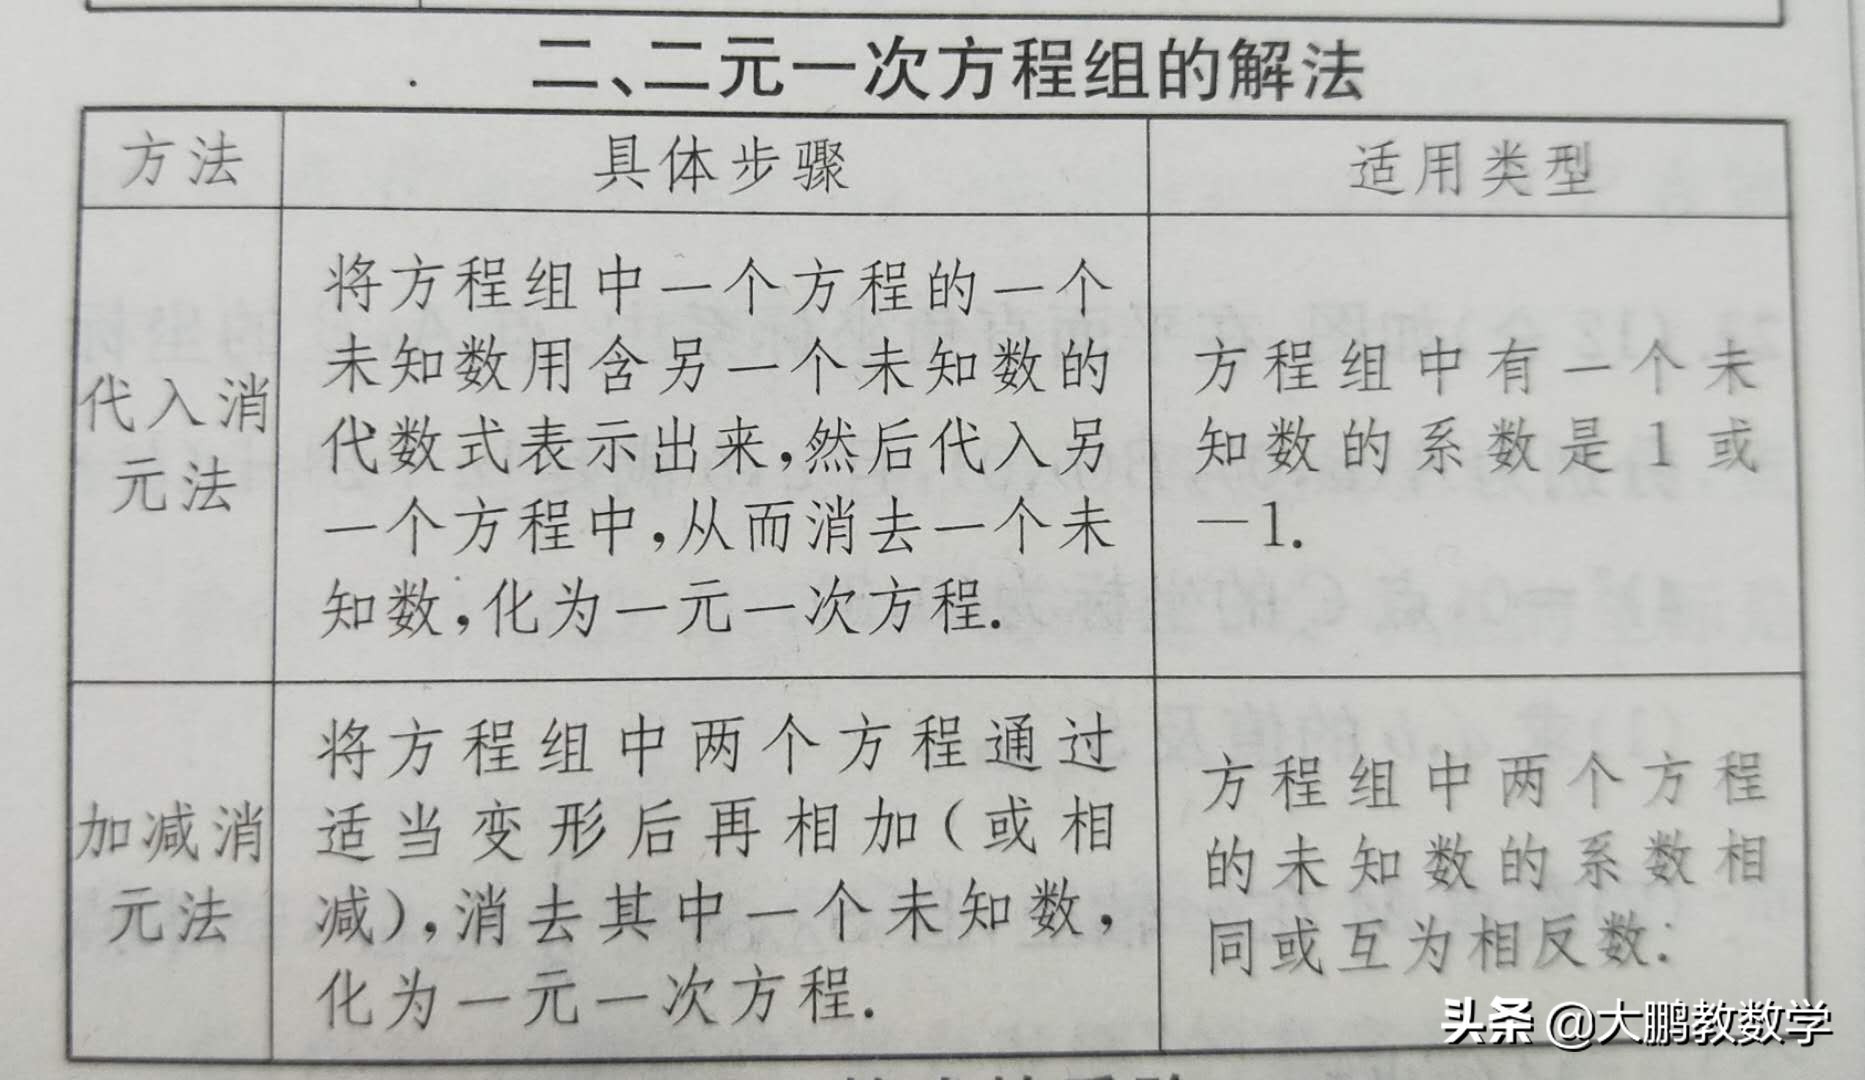 二、二元一次方程组的解法
方法
具体步骤
适用类型
代入消
元法
将方程组中一个方程的一个
未知数用含另一个未知数的
代数式表示出来,然后代入另
一个方程中,从而消去一个未
知数,化为一元一次方程.
方程组中有一个未
知数的系数是1或
-1.
加减消
元法
将方程组中两个方程通过
适当变形后再相加(或相
减),消去其中一个未知数,
化为一元一次方程.
方程组中两个方程
的未知数的系数相
同或互为相反数.
头条 @大鹏教数学